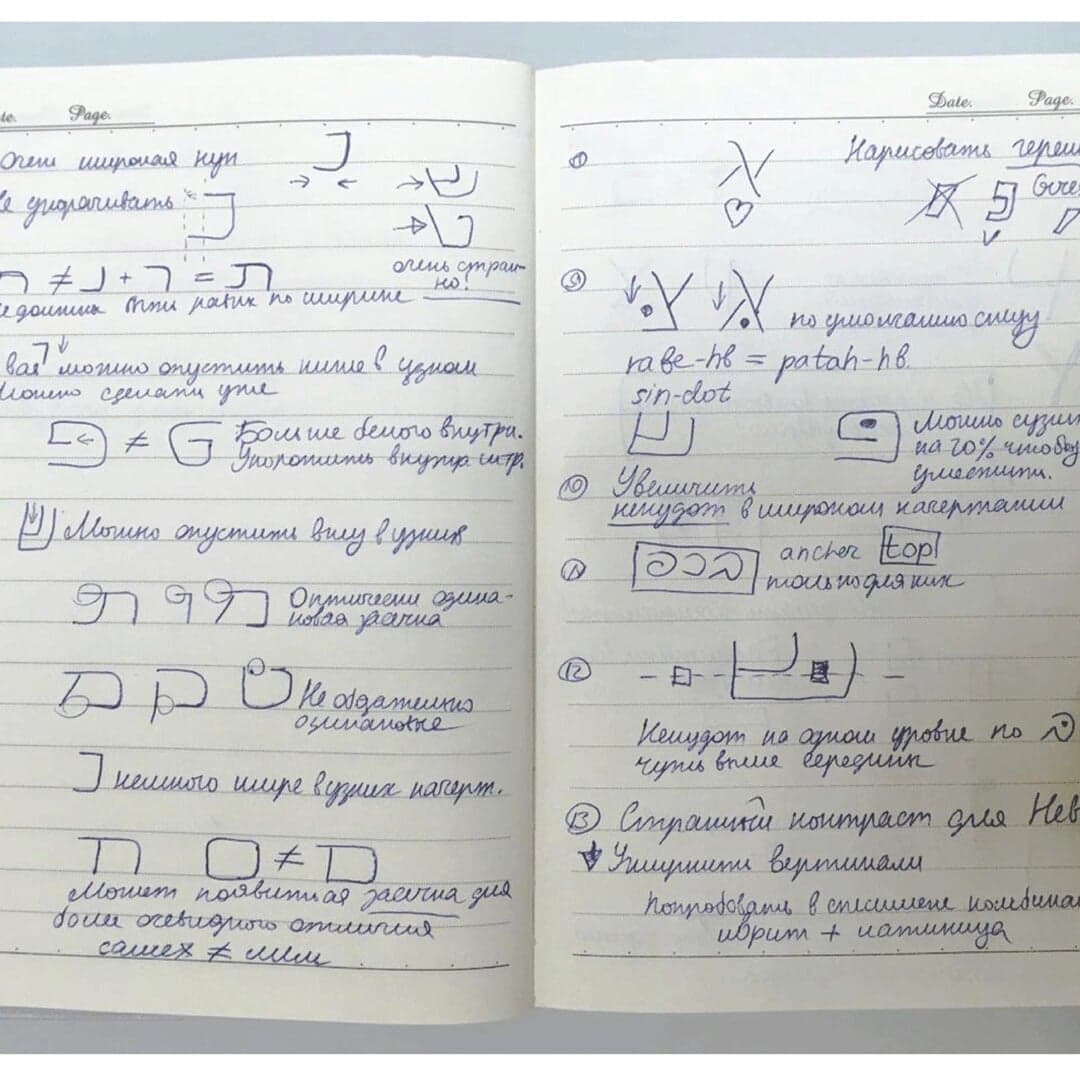 te.
Page.
Очень широкая нун
Не укорачивать
ח ≠ נ + ר = ת
очень стран-
но!
по ширине
можно опустить ниже в узком
Можно сделать уже
≠
Больше белого внутри.
Укоротить внутр. штр.
Можно опустить внизу в узких
Оптически одина-
ковая засечка
Не обязательно
одинаковые
נ немного шире в узких начерт.
ת ס ≠ ם
Может появиться засечка для
более очевидного отличия
самех ≠ мем
Date.
Page.
Нарисовать гереш
Gere
9
по умолчанию снизу
rafe-hb = patah-hb.
sin-dot
Можно сузит
на 20% чтобы
уместить.
10 Увеличить
некудот в широком начертании
11
ancher top
только для них
12
Некудот на одном уровне по
чуть выше середины
13 Страшный контраст для Нев
Уширить вертикали
Попробовать в спесимене комбина
иврит + латиница